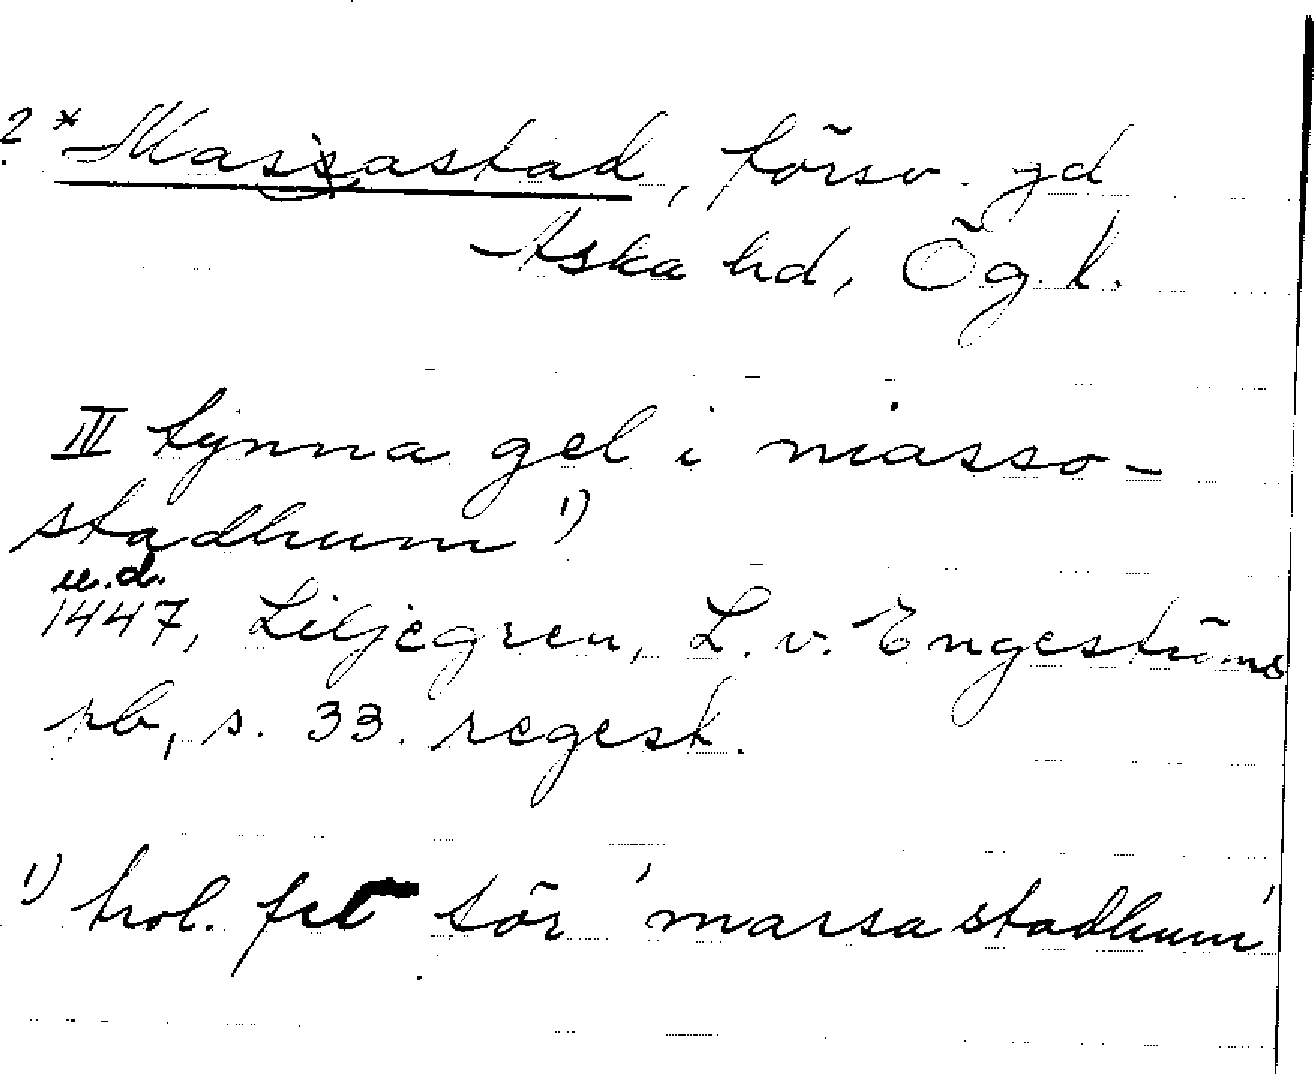 ? * Massastad, försv. gd
Aska hd, Ög. l.
III tynna gel i niasso-
stadhum 1)
u.d.
1447, Liljegren, L. v. Engeströms
rb, s. 33. regest.
1) trol. fel för 'marsastadhum'